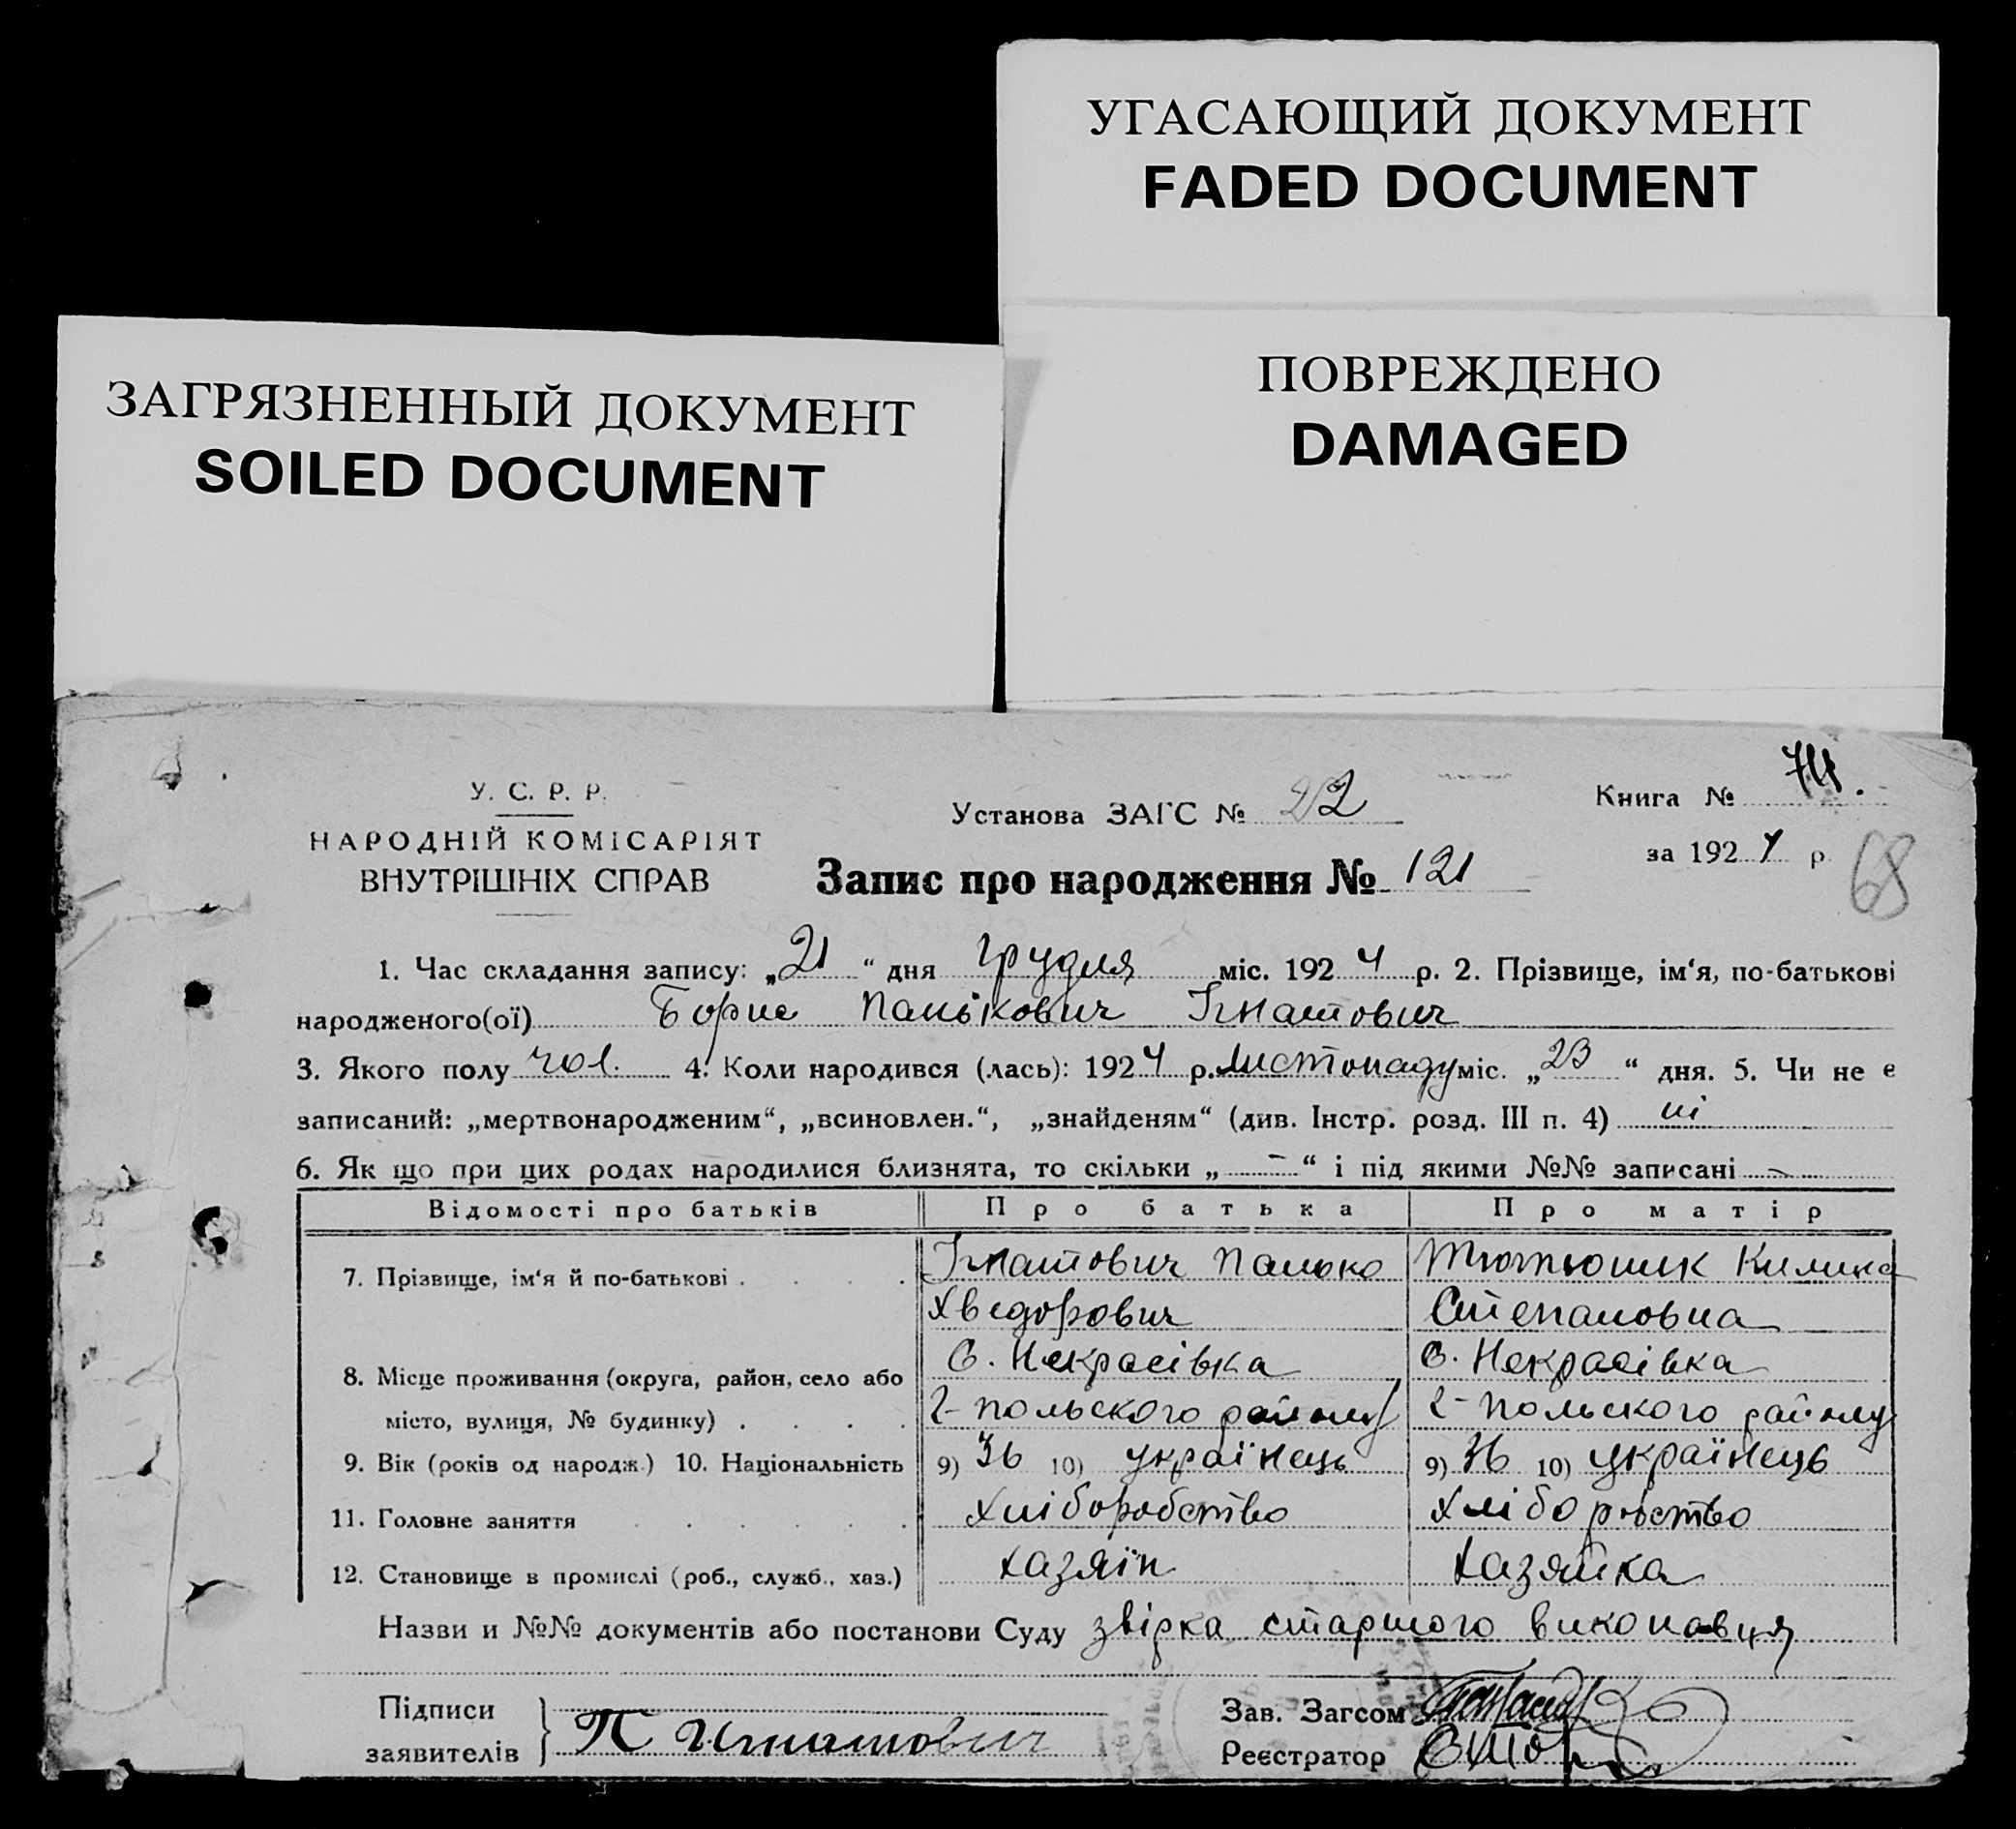 УГАСАЮЩИЙ ДОКУМЕНТ
FADED DOCUMENT
ЗАГРЯЗНЕННЫЙ ДОКУМЕНТ
SOILED DOCUMENT
ПОВРЕЖДЕНО
DAMAGED
У. С. Р. Р.
НАРОДНІЙ КОМІСАРІЯТ
ВНУТРІШНІХ СПРАВ
Установа ЗАГС № 22
Книга № 74.
за 1924 р
68
Запис про народження № 121
1. Час складання запису: „21“ дня грудня міс. 1924 р. 2. Прізвище, ім‘я, по-батькові
народженого(ої) Борис Панькович Ігнатович
3. Якого полу чол. 4. Коли народився (лась): 1924 р. листопаду міс. „23“ дня. 5. Чи не є
записаний: „мертвонародженим“, „всиновлен.“, „знайденям“ (див. Інстр. розд. III п. 4) ні
6. Як що при цих родах народилися близнята, то скільки „ – “ і під якими №№ записані –
Відомості про батьків Про батька Про матір
7. Прізвище, ім‘я й по-батькові . . . . Ігнатович Панько Тютюник Килина
Хведорович Степановна
С. Некрасівка С. Некрасівка
8. Місце проживання (округа, район, село або
місто, вулиця, № будинку) . . . . 2-польского району 2-польского району
9. Вік (років од народж.) 10. Національність 9) 36 10) українець 9) 36 10) українець
11. Головне заняття . . . . . . хліборобство хліборобство
12. Становище в промислі (роб., служб., хаз.) хазяїн хазяйка
Назви и №№ документів або постанови Суду звірка старшого виконавця
Підписи
заявителів } П Игнатович
Зав. Загсом
Реєстратор